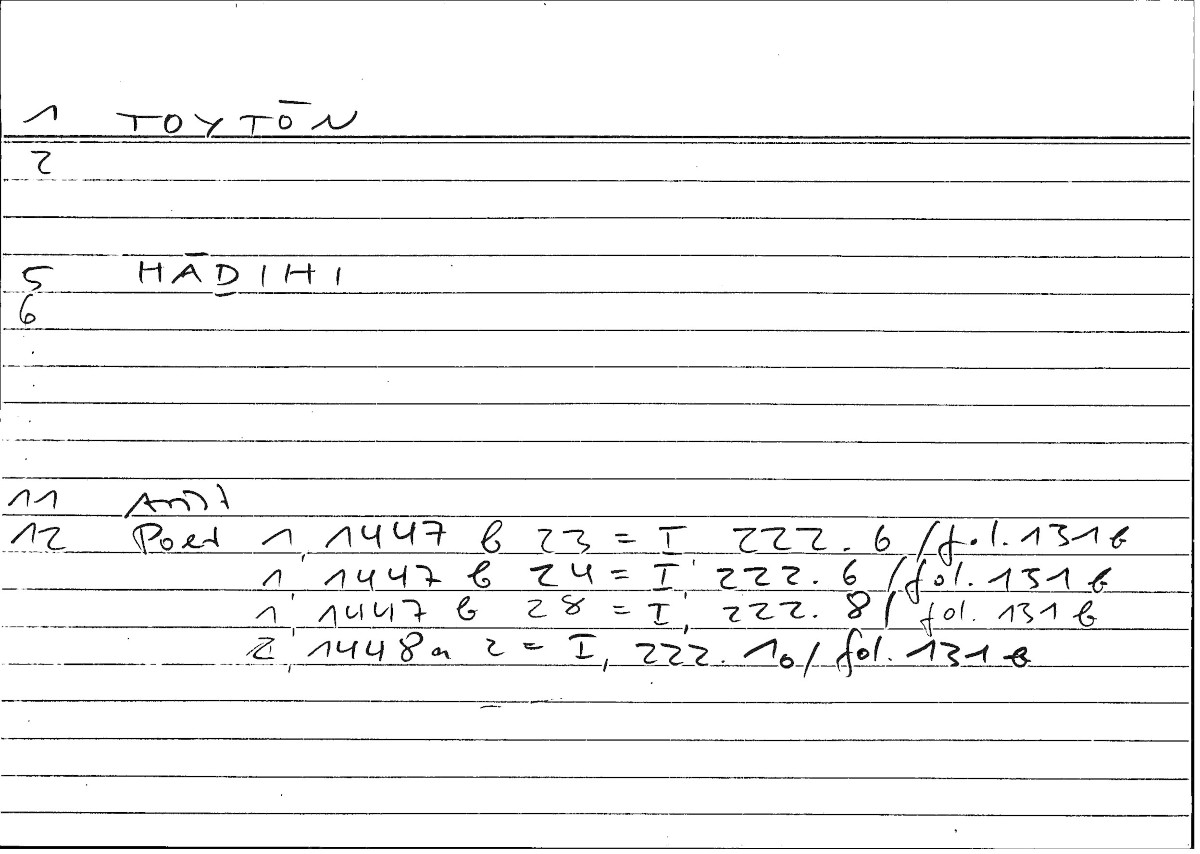 1 TOYTŌN
2
5 HĀḎIHI
6
11 Arist
12 Poet 1, 1447 b 23 = I 222. 6 / fol. 131 b
1, 1447 b 24 = I, 222. 6 / fol. 131 b
1, 1447 b 28 = I, 222. 8 / fol. 131 b
2, 1448 a 2 = I, 222. 10 / fol. 131 b